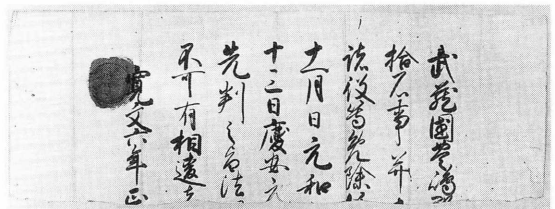 武蔵国豊嶋郡
拾石事并
諸役等免除
十一月日元和
十三日慶安元
先判之旨
不可有相違
寛文六年正